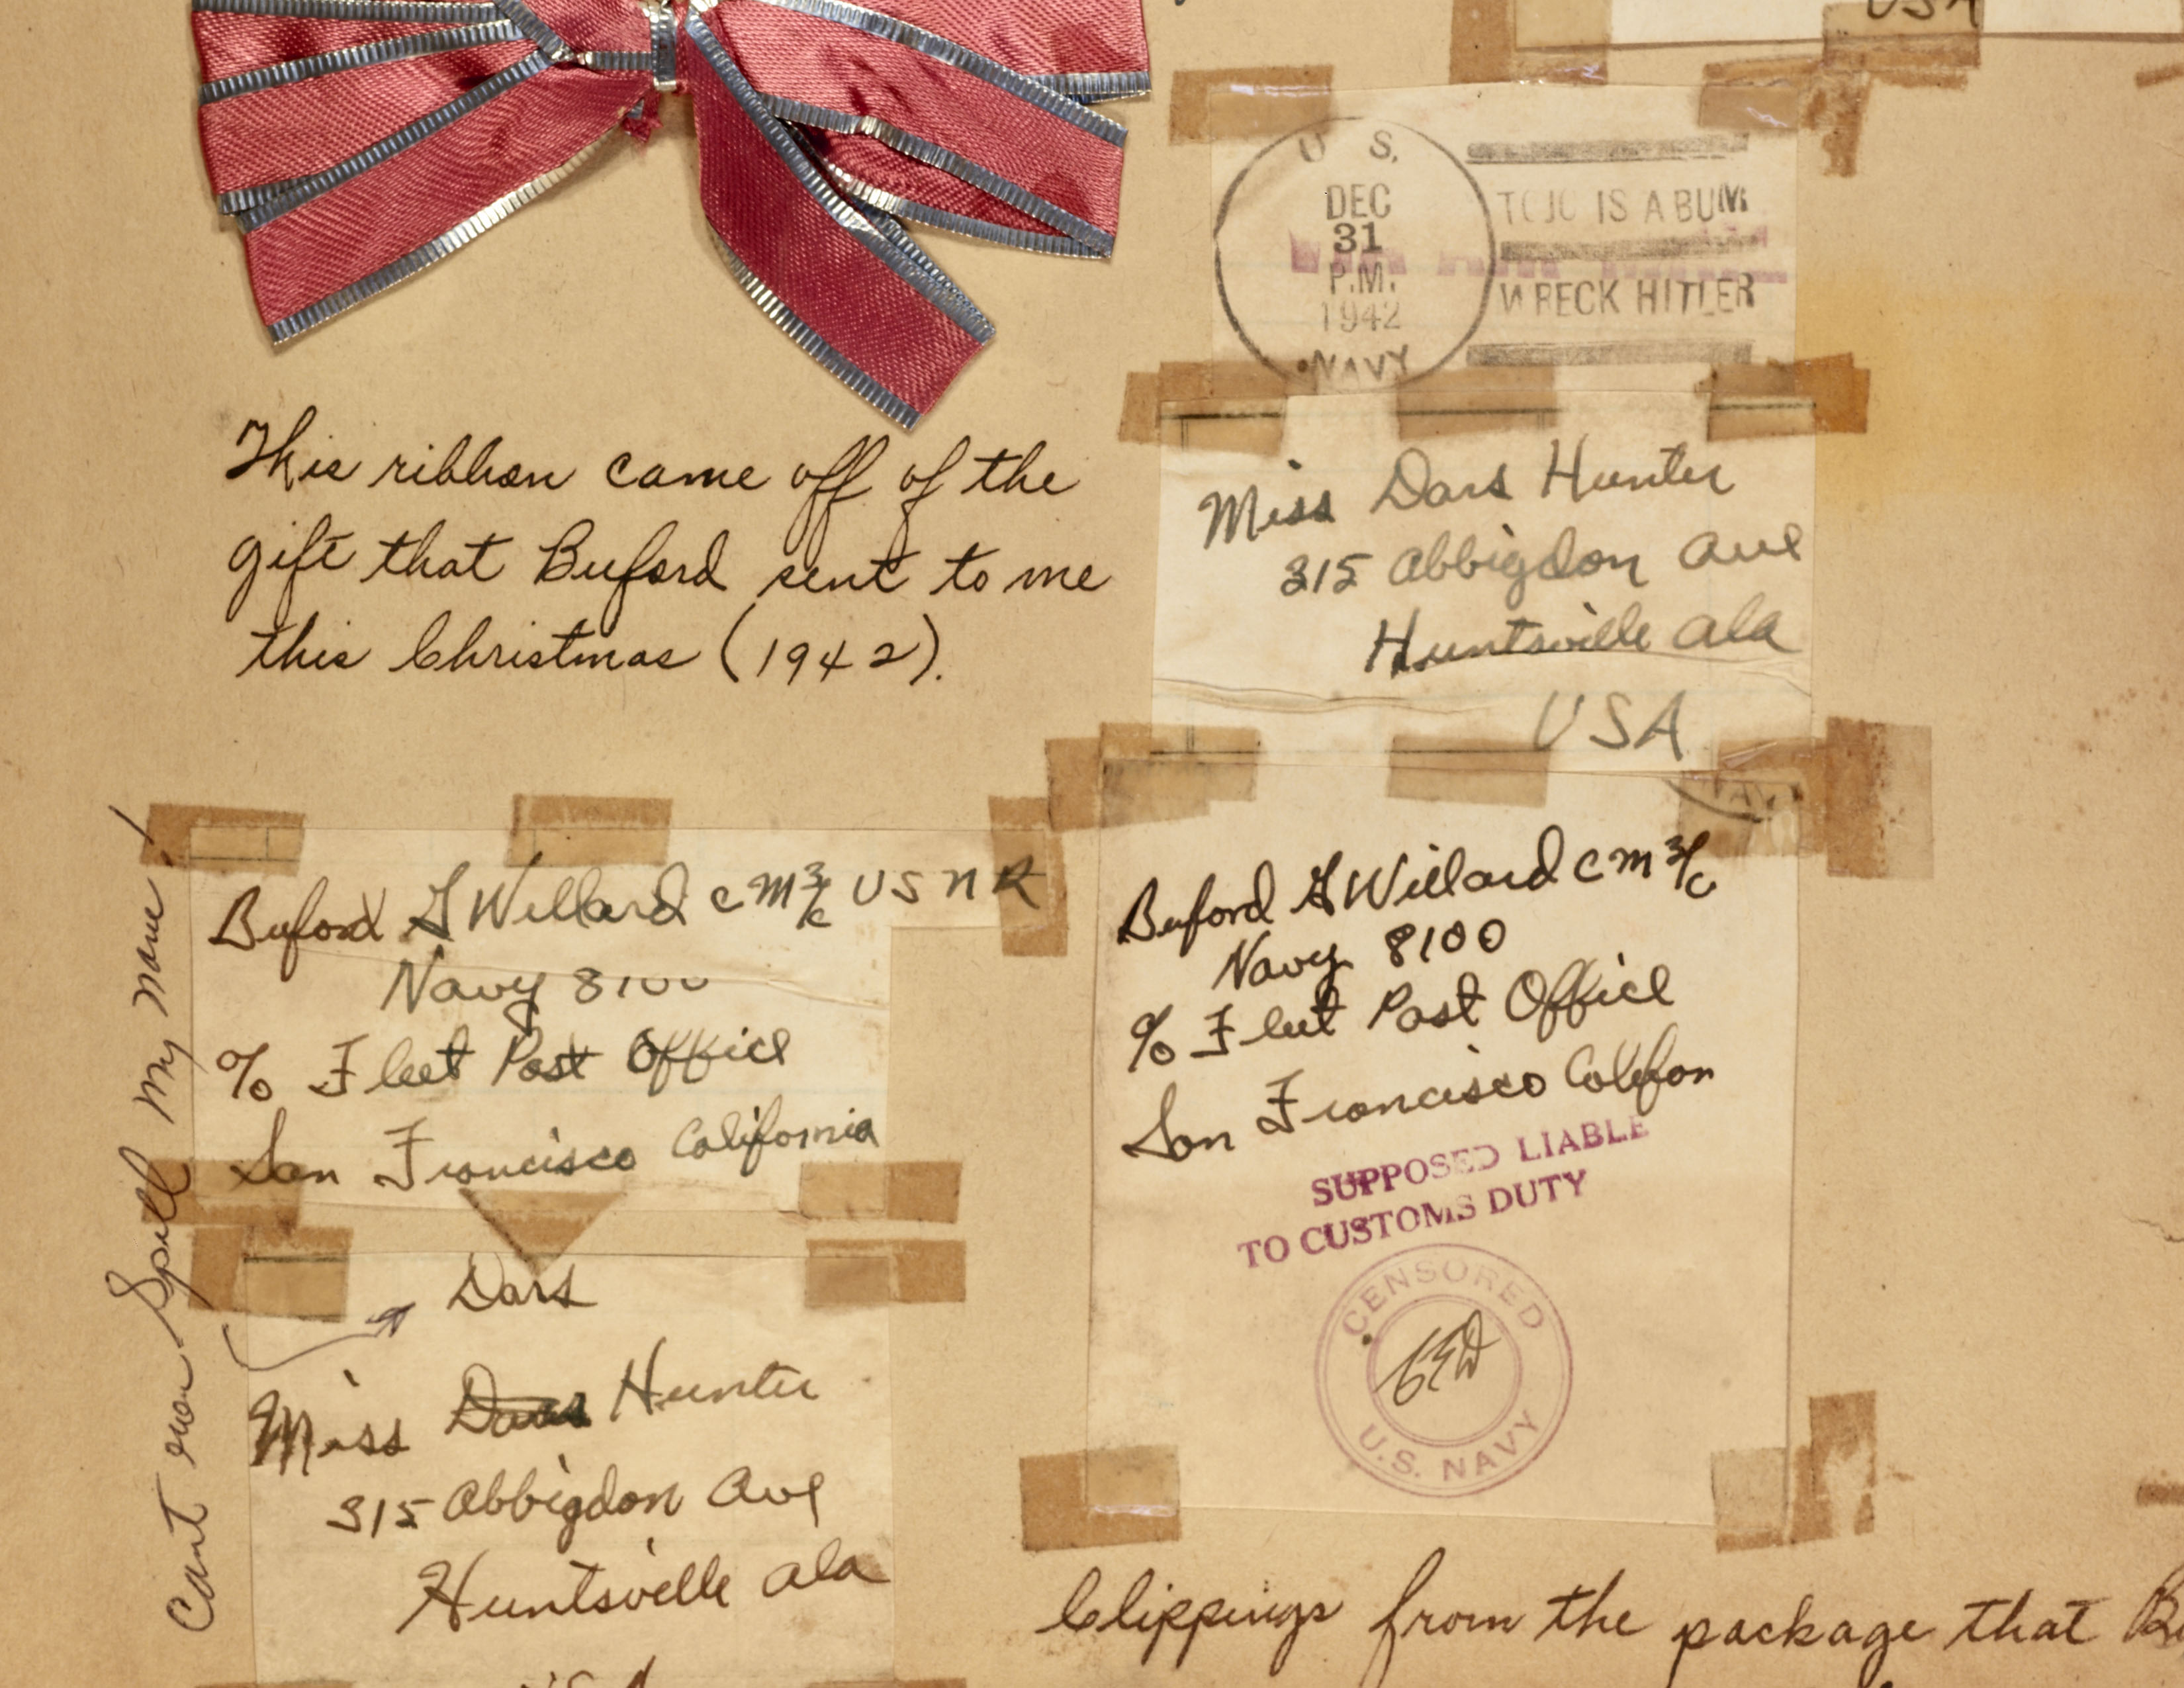 USA
U. S.
DEC
31
P.M.
1942
NAVY
TOJO IS A BUM
WRECK HITLER
VIA AIR MAIL
This ribbon came off of the
gift that Buford sent to me
this Christmas (1942).
Miss Dars Hunter
315 Abbigdon Ave
Huntsville Ala
USA
Cant even Spell my name!
Buford G Willard CM 3/c USNR
Navy 8100
% Fleet Post Office
San Francisco California
Dars
Miss Hunter
315 Abbigdon Ave
Huntsville Ala
Buford G Willard CM 3/c
Navy 8100
% Fleet Post Office
San Francisco Califon
SUPPOSED LIABLE
TO CUSTOMS DUTY
CENSORED
U.S. NAVY
Clippings from the package that